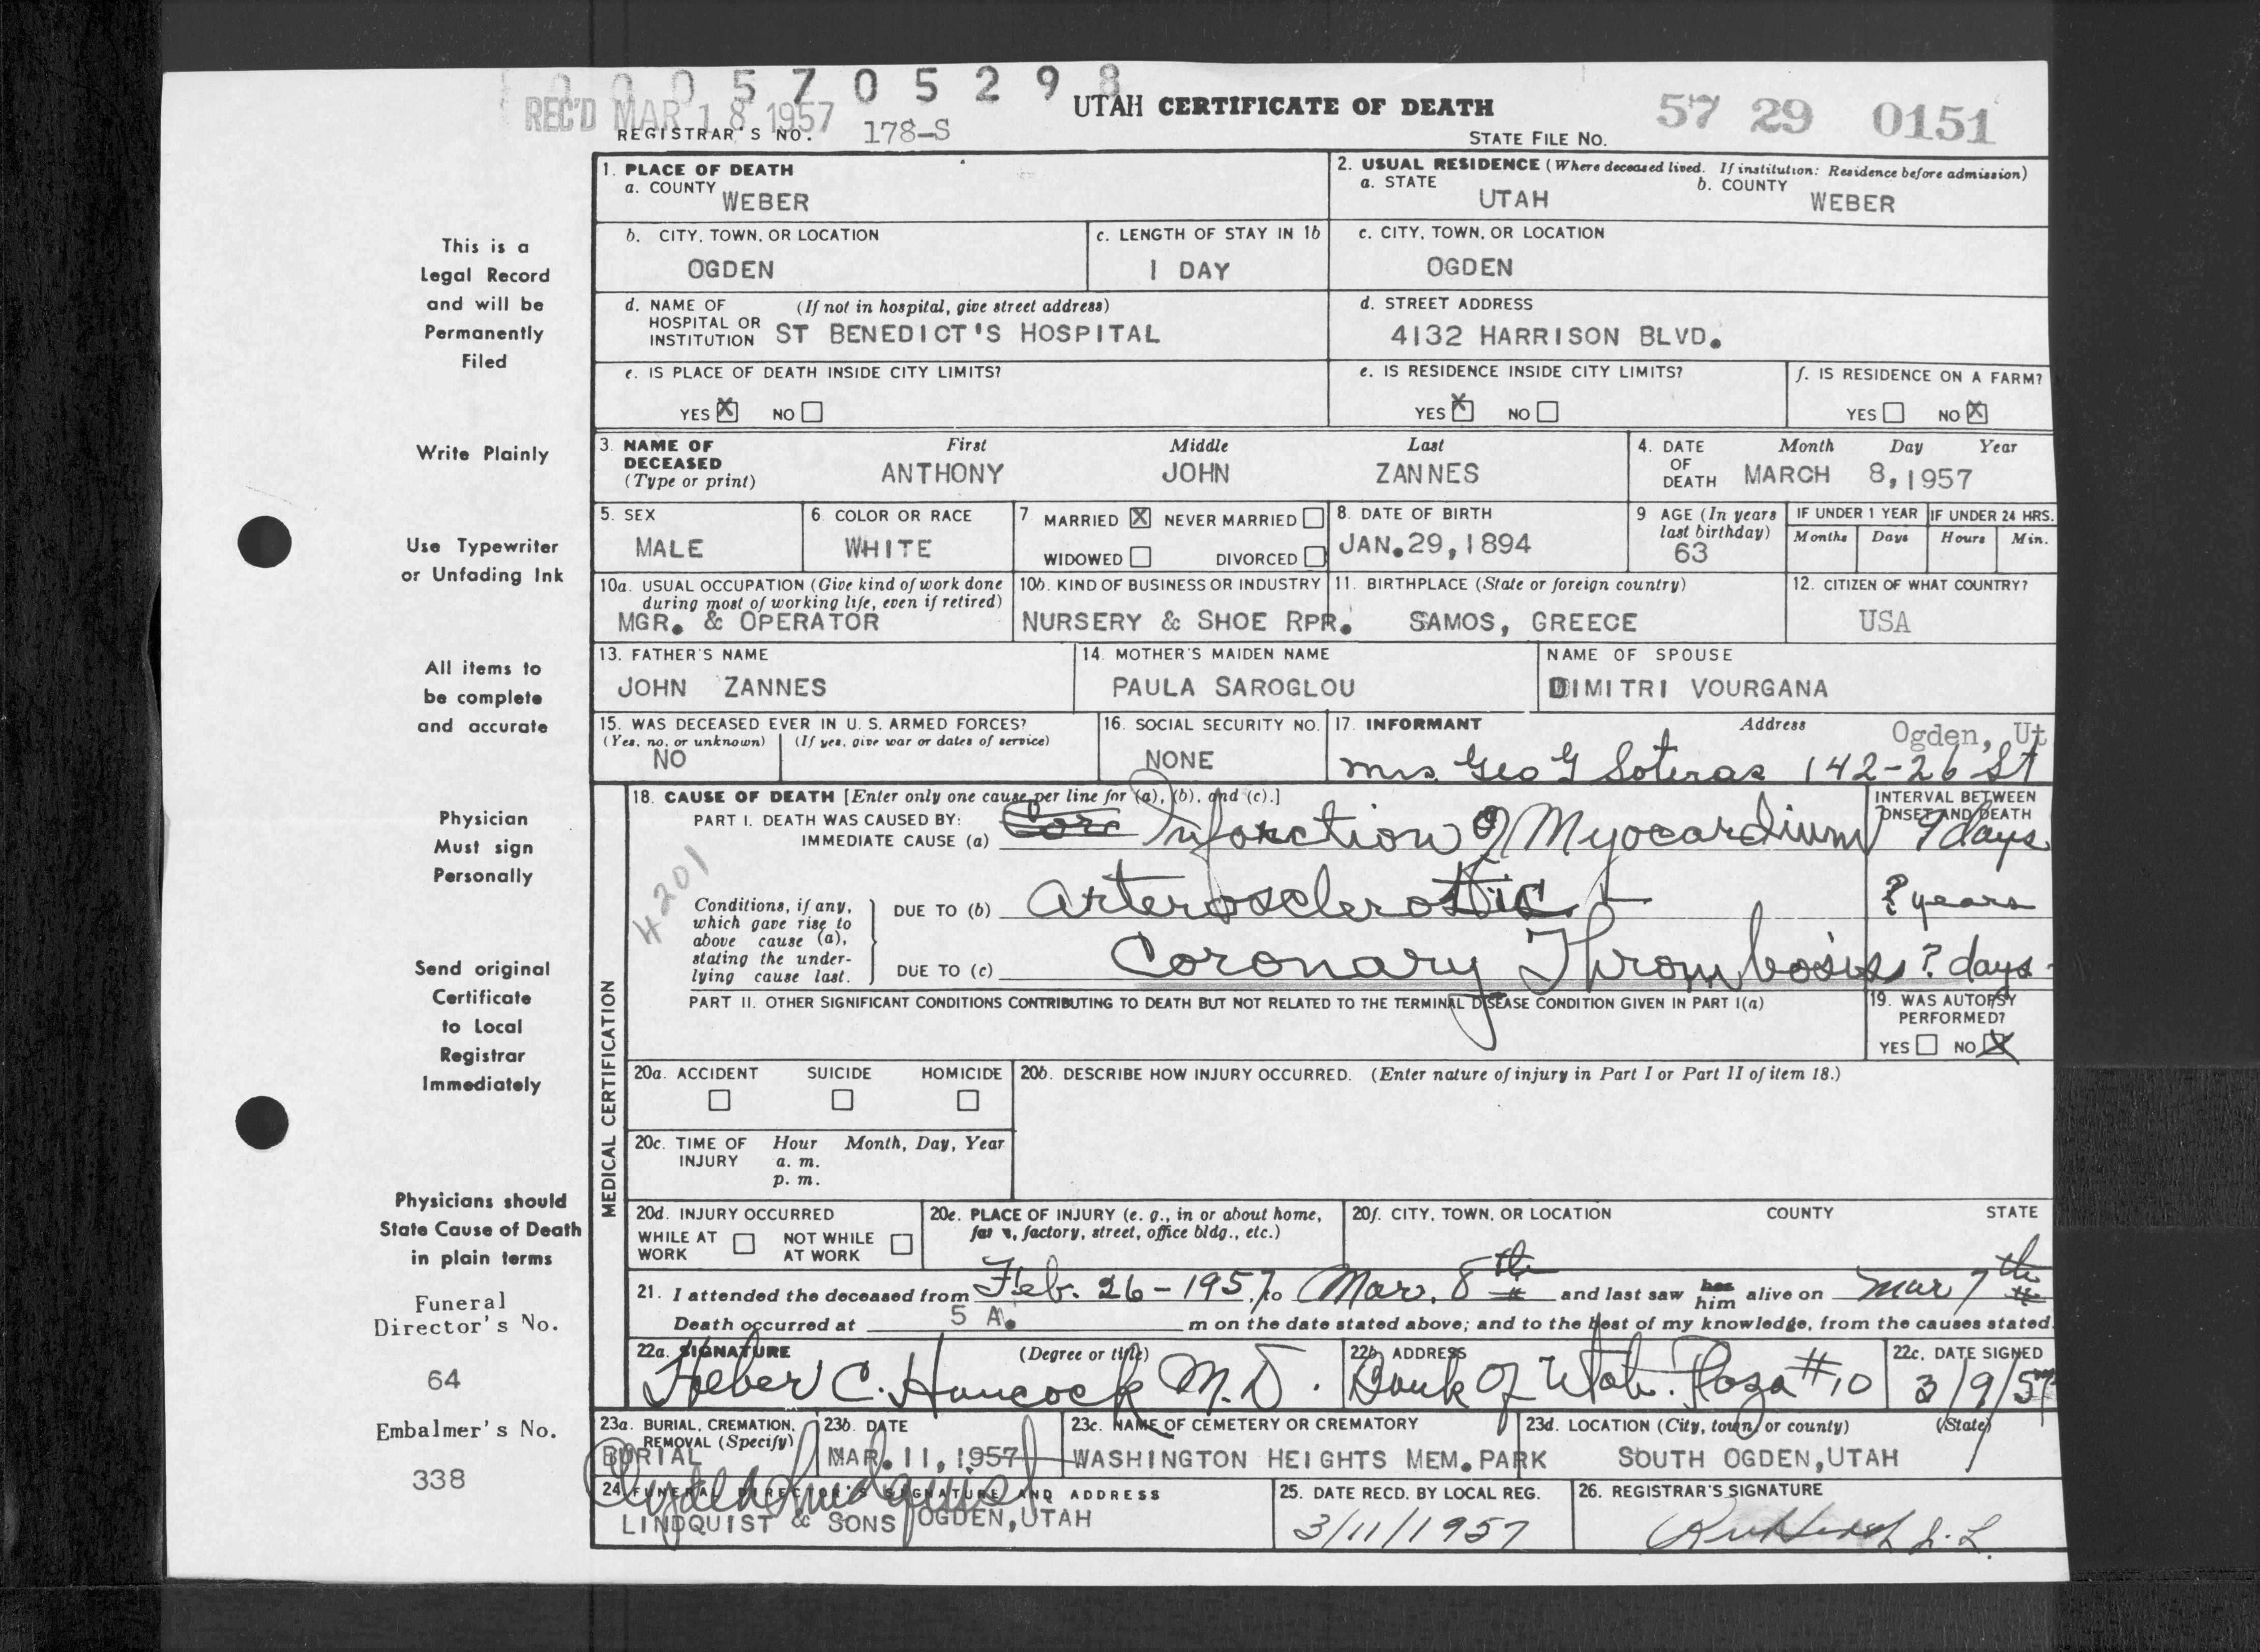 0005705298
REC'D MAR 18 1957
UTAH CERTIFICATE OF DEATH
57 29 0151
REGISTRAR'S NO. 178-S
STATE FILE NO.
1. PLACE OF DEATH
a. COUNTY WEBER
2. USUAL RESIDENCE (Where deceased lived. If institution: Residence before admission)
a. STATE UTAH b. COUNTY WEBER
b. CITY, TOWN, OR LOCATION OGDEN
c. LENGTH OF STAY IN 1b 1 DAY
c. CITY, TOWN, OR LOCATION OGDEN
d. NAME OF HOSPITAL OR INSTITUTION (If not in hospital, give street address) ST BENEDICT'S HOSPITAL
d. STREET ADDRESS 4132 HARRISON BLVD.
e. IS PLACE OF DEATH INSIDE CITY LIMITS?
YES X NO
e. IS RESIDENCE INSIDE CITY LIMITS?
YES X NO
f. IS RESIDENCE ON A FARM?
YES NO X
3. NAME OF DECEASED (Type or print)
First Middle Last
ANTHONY JOHN ZANNES
4. DATE OF DEATH Month Day Year
MARCH 8, 1957
5. SEX MALE
6. COLOR OR RACE WHITE
7 MARRIED X NEVER MARRIED
WIDOWED DIVORCED
8. DATE OF BIRTH JAN. 29, 1894
9 AGE (In years last birthday) 63
IF UNDER 1 YEAR Months Days
IF UNDER 24 HRS. Hours Min.
10a. USUAL OCCUPATION (Give kind of work done during most of working life, even if retired)
MGR. & OPERATOR
10b. KIND OF BUSINESS OR INDUSTRY
NURSERY & SHOE RPR.
11. BIRTHPLACE (State or foreign country)
SAMOS, GREECE
12. CITIZEN OF WHAT COUNTRY?
USA
13. FATHER'S NAME
JOHN ZANNES
14. MOTHER'S MAIDEN NAME
PAULA SAROGLOU
NAME OF SPOUSE
DIMITRI VOURGANA
15. WAS DECEASED EVER IN U. S. ARMED FORCES?
(Yes, no, or unknown) (If yes, give war or dates of service)
NO
16. SOCIAL SECURITY NO.
NONE
17. INFORMANT Address
Ogden, Ut
Mrs. Geo G Soteras 142-26 St
MEDICAL CERTIFICATION
18. CAUSE OF DEATH [Enter only one cause per line for (a), (b), and (c).]
PART I. DEATH WAS CAUSED BY:
IMMEDIATE CAUSE (a) Coro Infarction of Myocardium
INTERVAL BETWEEN ONSET AND DEATH
9 days
4201
Conditions, if any, which gave rise to above cause (a), stating the underlying cause last.
DUE TO (b) Arterosclerostic
? years
DUE TO (c) Coronary Thrombosis
? days
PART II. OTHER SIGNIFICANT CONDITIONS CONTRIBUTING TO DEATH BUT NOT RELATED TO THE TERMINAL DISEASE CONDITION GIVEN IN PART I(a)
19. WAS AUTOPSY PERFORMED?
YES NO X
20a. ACCIDENT SUICIDE HOMICIDE
20b. DESCRIBE HOW INJURY OCCURRED. (Enter nature of injury in Part I or Part II of item 18.)
20c. TIME OF INJURY Hour Month, Day, Year
a. m.
p. m.
20d. INJURY OCCURRED
WHILE AT WORK NOT WHILE AT WORK
20e. PLACE OF INJURY (e. g., in or about home, farm, factory, street, office bldg., etc.)
20f. CITY, TOWN, OR LOCATION COUNTY STATE
21. I attended the deceased from Feb. 26-1957, to Mar. 8th and last saw her him alive on Mar 7th
Death occurred at 5 A. m on the date stated above; and to the best of my knowledge, from the causes stated.
22a. SIGNATURE (Degree or title)
Heber C. Hancock M.D.
22b. ADDRESS
Bank of Utah Plaza #10
22c. DATE SIGNED
3/9/57
23a. BURIAL, CREMATION, REMOVAL (Specify)
BURIAL
23b. DATE
MAR. 11, 1957
23c. NAME OF CEMETERY OR CREMATORY
WASHINGTON HEIGHTS MEM. PARK
23d. LOCATION (City, town, or county) (State)
SOUTH OGDEN, UTAH
24. FUNERAL DIRECTOR'S SIGNATURE AND ADDRESS
LINDQUIST & SONS OGDEN, UTAH
25. DATE RECD. BY LOCAL REG.
3/11/1957
26. REGISTRAR'S SIGNATURE
This is a
Legal Record
and will be
Permanently
Filed
Write Plainly
Use Typewriter
or Unfading Ink
All items to
be complete
and accurate
Physician
Must sign
Personally
Send original
Certificate
to Local
Registrar
Immediately
Physicians should
State Cause of Death
in plain terms
Funeral
Director's No.
64
Embalmer's No.
338